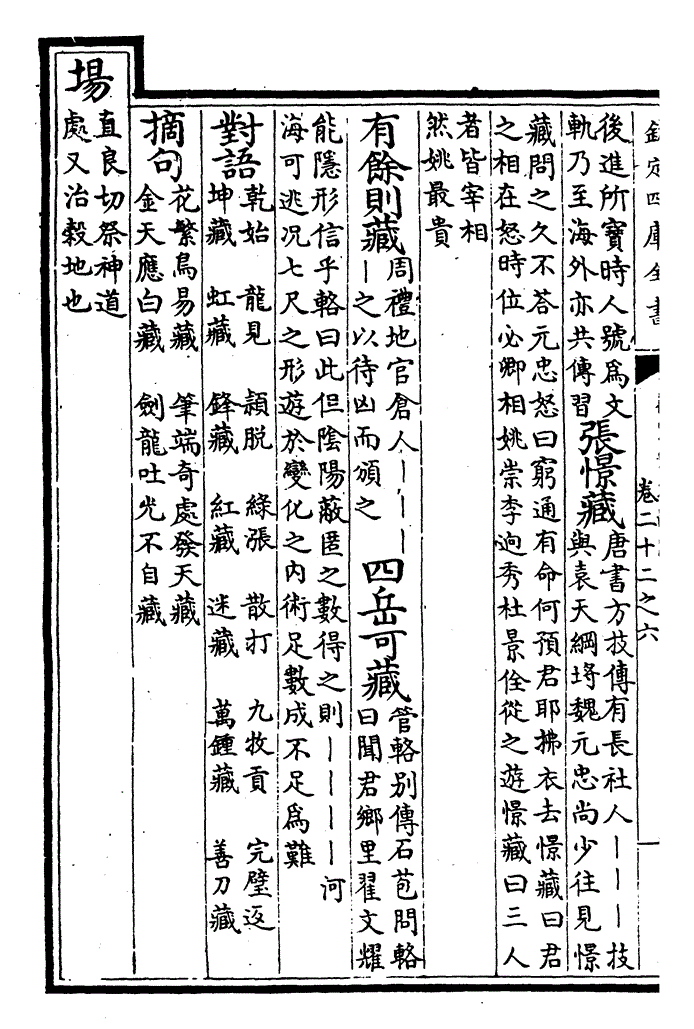 欽定四庫全書
卷二十二之六
一
後進所寶時人號爲文
軌乃至海外亦共傳習
張憬藏
唐書方技傳有長社人丨丨丨技
與袁天綱埒魏元忠尚少往見憬
藏問之久不荅元忠怒曰窮通有命何預君耶拂衣去憬藏曰君
之相在怒時位必卿相姚崇李迥秀杜景佺從之遊憬藏曰三人
者皆宰相
然姚最貴
有餘則藏
周禮地官倉人丨丨丨
丨之以待凶而頒之
四岳可藏
管輅別傳石苞問輅
曰聞君鄉里翟文耀
能隱形信乎輅曰此但陰陽蔽匿之數得之則丨丨丨丨河
海可逃况七尺之形遊於變化之內術足數成不足爲難
對語
乾始 龍見 穎脫 綠漲 散打 九牧貢 完璧返
坤藏 虹藏 鋒藏 紅藏 迷藏 萬鍾藏 善刀藏
摘句
花繁鳥易藏 筆端奇處發天藏
金天應白藏 劍龍吐光不自藏
場
直良切祭神道
處又治糓地也